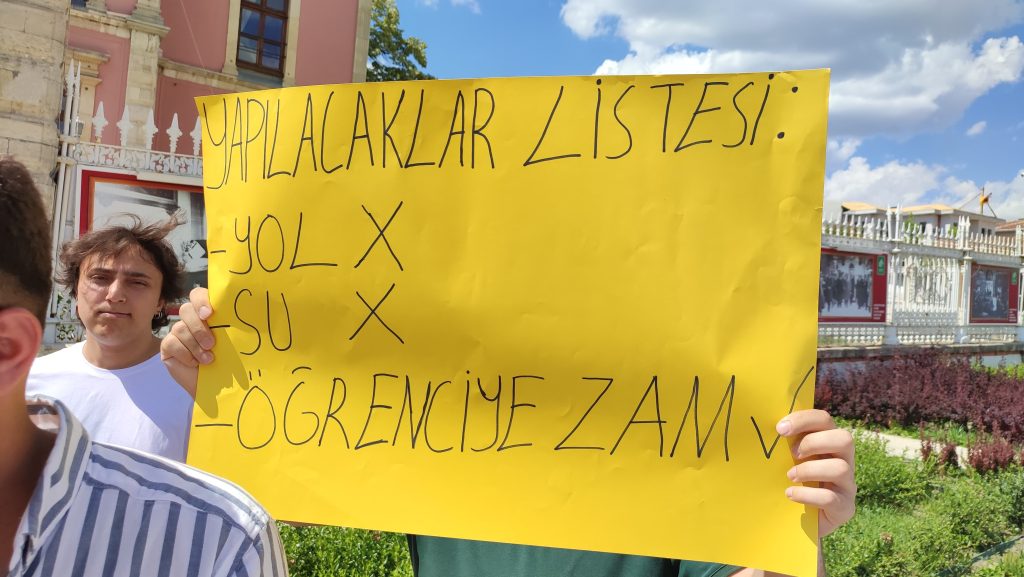 YAPILACAKLAR LİSTESİ:
-YOL X
-SU X
-ÖĞRENCİYE ZAM ✓